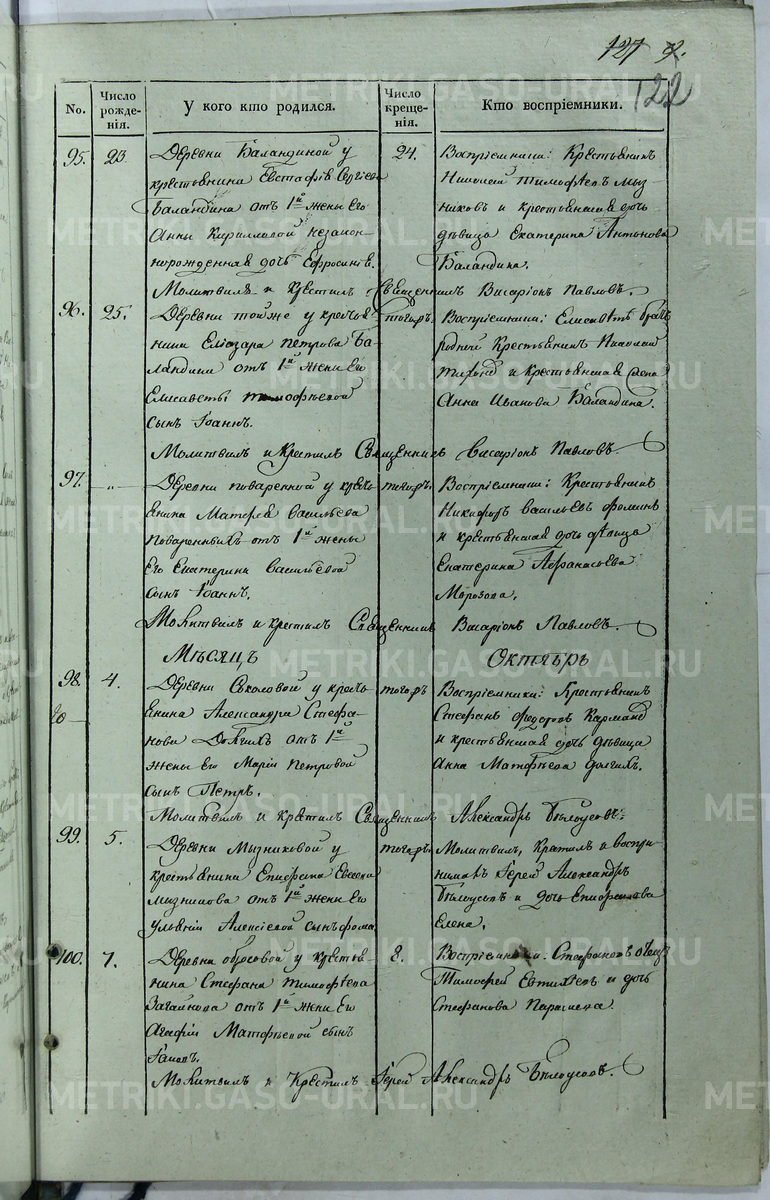 127
122
No.
Число рожде-нія.
У кого кто родился.
Число креще-нія.
Кто воспріемники.
95.
23
Деревни Баландиной у
крестьянина Евстафія Сергіева
Баландина отъ 1й жены его
Анны Кирилловой незакон-
норожденная дочь Ефросинія.
24.
Воспріемники: Крестьянинъ
Николай Тимофѣевъ Мыз-
никовъ и крестьянская дочь
дѣвица Екатерина Антонова
Баландина.
Молитвилъ и крестилъ Священникъ Висаріонъ Павловъ.
96.
25.
Деревни тойже у крестья
нина Еліазара Петрова Ба-
ландина отъ 1й жены его
Елисаветы Тимофѣевой
сынъ Іоаннъ.
тогожъ.
Воспріемники: братъ
родной Крестьянинъ Николай
и крестьянская
Анна Иванова Баландина.
Молитвилъ и Крестилъ Священникъ Висаріонъ Павловъ.
97.
-"-
Деревни Поваренной у кресть
янина Матфея Васильева
Поваренныхъ отъ 1й жены
его Екатерины Васильевой
сынъ Іоаннъ.
тогожъ.
Воспріемники: Крестьянинъ
Никифоръ Васильевъ Фоминъ
и крестьянская дочь дѣвица
Екатерина Афанасьева
Морозова.
Молитвилъ и крестилъ Священникъ Висаріонъ Павловъ.
Мѣсяцъ Октябрь
98.
4.
Деревни Соколовой у кресть
янина Александра Стефа-
нова Долгихъ отъ 1й
жены его Маріи Петровой
сынъ Петръ.
тогожъ
Воспріемники: Крестьянинъ
Стефанъ Федоровъ
и крестьянская дочь дѣвица
Анна Матфѣева Долгихъ.
Молитвилъ и крестилъ Священникъ Александръ Бѣлоусовъ.
99.
5.
Деревни Мызниковой у
крестьянина Епифана Евсеева
Мызникова отъ 1й жены его
Уліянии Алексіевой сынъ Фома
тогожъ.
Молитвилъ, Крестилъ и воспри-
нималъ Іерей Александръ
Бѣлоусовъ и дочь
Елена.
100.
7.
Деревни у крестья
нина Стефана Тимофѣева
отъ 1й жены его
Агафіи Матфѣевой сынъ
Іаковъ.
8.
Воспріемники: Стефановъ отецъ
Тимофей Евтихіевъ и дочь
Стефанова Параскева.
Молитвилъ и Крестилъ Іерей Александръ Бѣлоусовъ.
METRIKI.GASO-URAL.RU